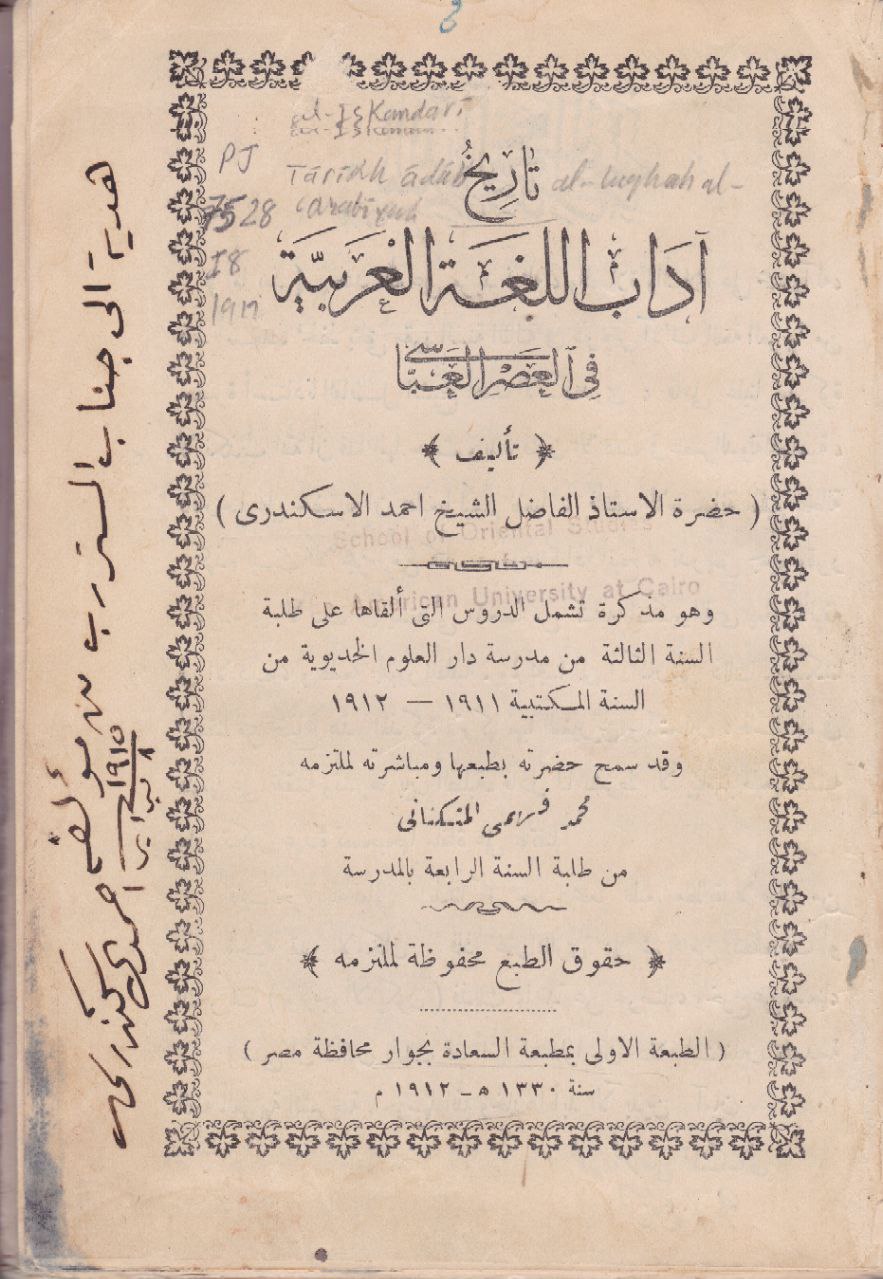 al-Iskandarī
PJ
7528
I8
1912
Tārīkh ādāb al-lughah al-
ʿarabīyah
تاريخ
آداب اللغة العربية
في العصر العباسي
﴿ تأليف ﴾
( حضرة الاستاذ الفاضل الشيخ احمد الاسكندرى )
School of Oriental Studies
American University at Cairo
وهو مذكرة تشمل الدروس التى ألقاها على طلبة
السنة الثالثة من مدرسة دار العلوم الخديوية من
السنة المكتبية ١٩١١ — ١٩١٢
وقد سمح حضرته بطبعها ومباشرته لملتزمه
محمد فهمى
من طلبة السنة الرابعة بالمدرسة
﴿ حقوق الطبع محفوظة لملتزمه ﴾
( الطبعة الاولى بمطبعة السعادة بجوار محافظة مصر )
سنة ١٣٣٠ هـ - ١٩١٢ م
هدية الى جناب المستر من مؤلفه
احمد الاسكندرى
٨ فبراير ١٩١٥